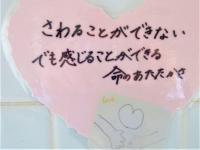 さわることができない
でも感じることができる
命のあたたかさ